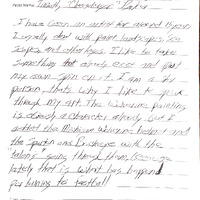 I have been an artist for around 15 years
I usually start with paint landscapes, sea
scapes and other types. I like to take
something that already is and put
my own spin on it. I am a shy
person, thats why I like to speak
through my art. The Wolverine painting
is already a character already but I
added the Michigan Wolverine helmet and
the Spartan and Buckeyes with the
"talons" going through them, because
lately that is what has happened
pertaining to football!